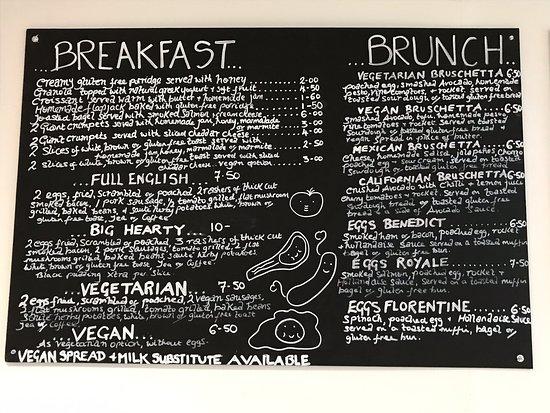 BREAKFAST...
Creamy gluten free porridge served with honey ........ 2-00
Granola topped with natural greek yogurt + 1gt fruit ..... 4-50
Croissant served warm with butter + homemade jam ..... 1-60
Homemade flapjack baked with gluten free porridge ..... 1-50
Toasted bagel served with smoked salmon + creamcheese ... 6-00
2 Giant crumpets served with homemade jam, honey, marmalade
or marmite ..... 2-00
2 Giant crumpets served with sliced cheddar cheese .... 4-00
2 slices of white, brown or gluten free toast served with
homemade jam, honey, marmalade or marmite ... 2-00
2 slices of white, brown or gluten free toast served with sliced
cheddar cheese. Vegan option ........ 3-00
FULL ENGLISH... 7-50
2 eggs, fried, scrambled or poached, 2 rashers of thick cut
smoked bacon, 1 pork sausage, ½ tomato grilled, 1 flat mushroom
grilled, baked beans, + sauté herby potatoes, white, brown or
gluten free toast, Tea or Coffee.
BIG HEARTY... 10-
2 eggs fried, scrambled or poached, 3 rashers of thick cut
smoked bacon, 2 pork sausages, tomato grilled, 2 flat
mushrooms grilled, baked beans, sauté herby potatoes,
white, brown or gluten free toast, Tea or Coffee.
Black pudding xtra per slice
...VEGETARIAN ... 7-50
2 eggs fried, scrambled or poached, 2 vegan sausages,
2 flat mushrooms grilled, tomato grilled, baked beans
sauté herby potatoes, white, brown or gluten free toast
Tea or Coffee.
...VEGAN... 6-50
As vegetarian option, without eggs.
VEGAN SPREAD + MILK SUBSTITUTE AVAILABLE
...BRUNCH...
VEGETARIAN BRUSCHETTA 6-50
poached egg, smashed Avocado, homemade
Pesto, vine tomatoes, + rocket. Served on
toasted Sourdough or toasted gluten free bread
VEGAN BRUSCHETTA ..... 6-50
smashed Avocado, homemade pesto,
vine tomatoes + rocket. Served on toasted
Sourdough or toasted gluten free bread
MEXICAN BRUSCHETTA 6-50
Cheese, homemade Salsa, jalapenos, Chorizo
poached egg + sour cream. Served on toasted
Sourdough or toasted gluten free bread
CALIFORNIAN BRUSCHETTA 6-50
Crushed Avocado with Chilli + lemon juice
Cherry tomatoes + rocket. Served on toasted
Sourdough bread or toasted gluten free
bread
EGGS BENEDICT ...... 6-50
Smoked ham, or bacon, poached egg, rocket
+ Hollandaise Sauce Served on a toasted muffin
bagel or gluten free bun.
EGGS ROYALE ...... 7-50
Smoked salmon, poached egg, rocket +
Hollandaise Sauce, Served on a toasted muffin,
bagel or gluten free bun.
EGGS FLORENTINE ........ 6-50
Spinach, poached egg + Hollandaise Sauce
served on a toasted muffin, bagel or
gluten free bun.